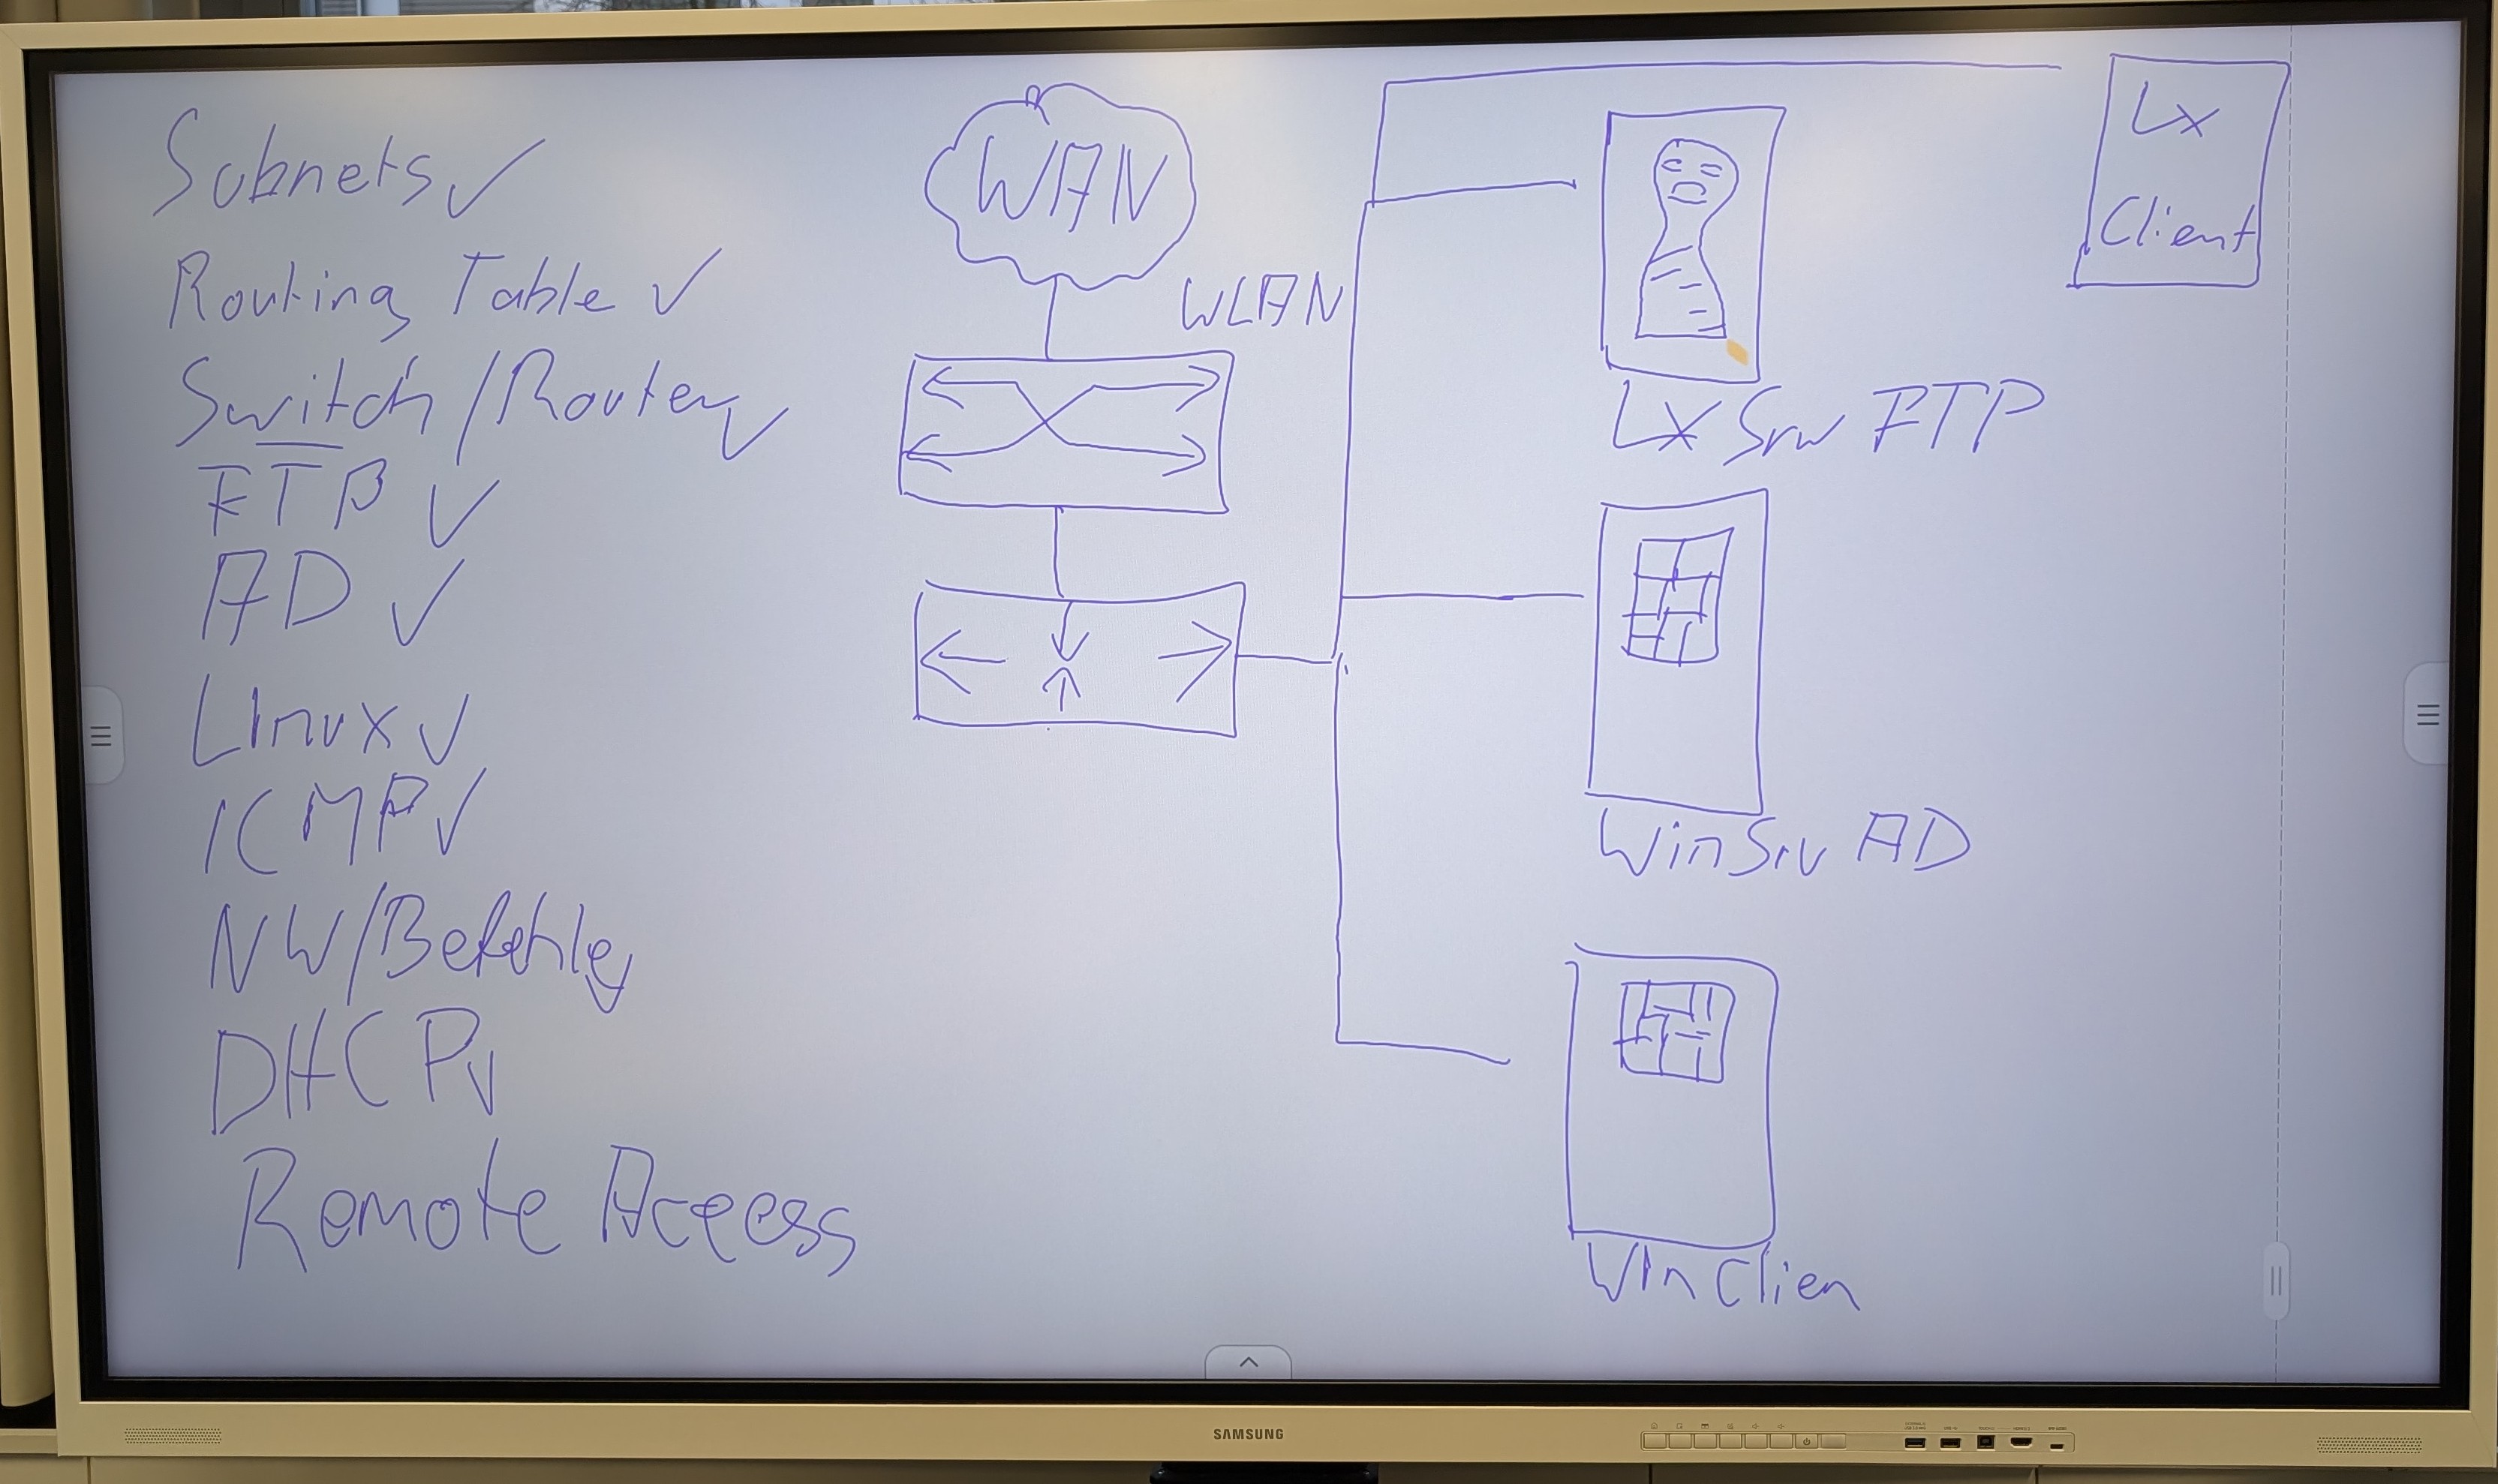 Subnets ✓
Routing Table ✓
Switch/Router ✓
FTP ✓
AD ✓
LInux ✓
ICMP ✓
NW/Befehle ✓
DHCP ✓
Remote Access
WAN
WLAN
Lx
Client
Lx Srv FTP
WinSrv AD
WIn Clien
SAMSUNG